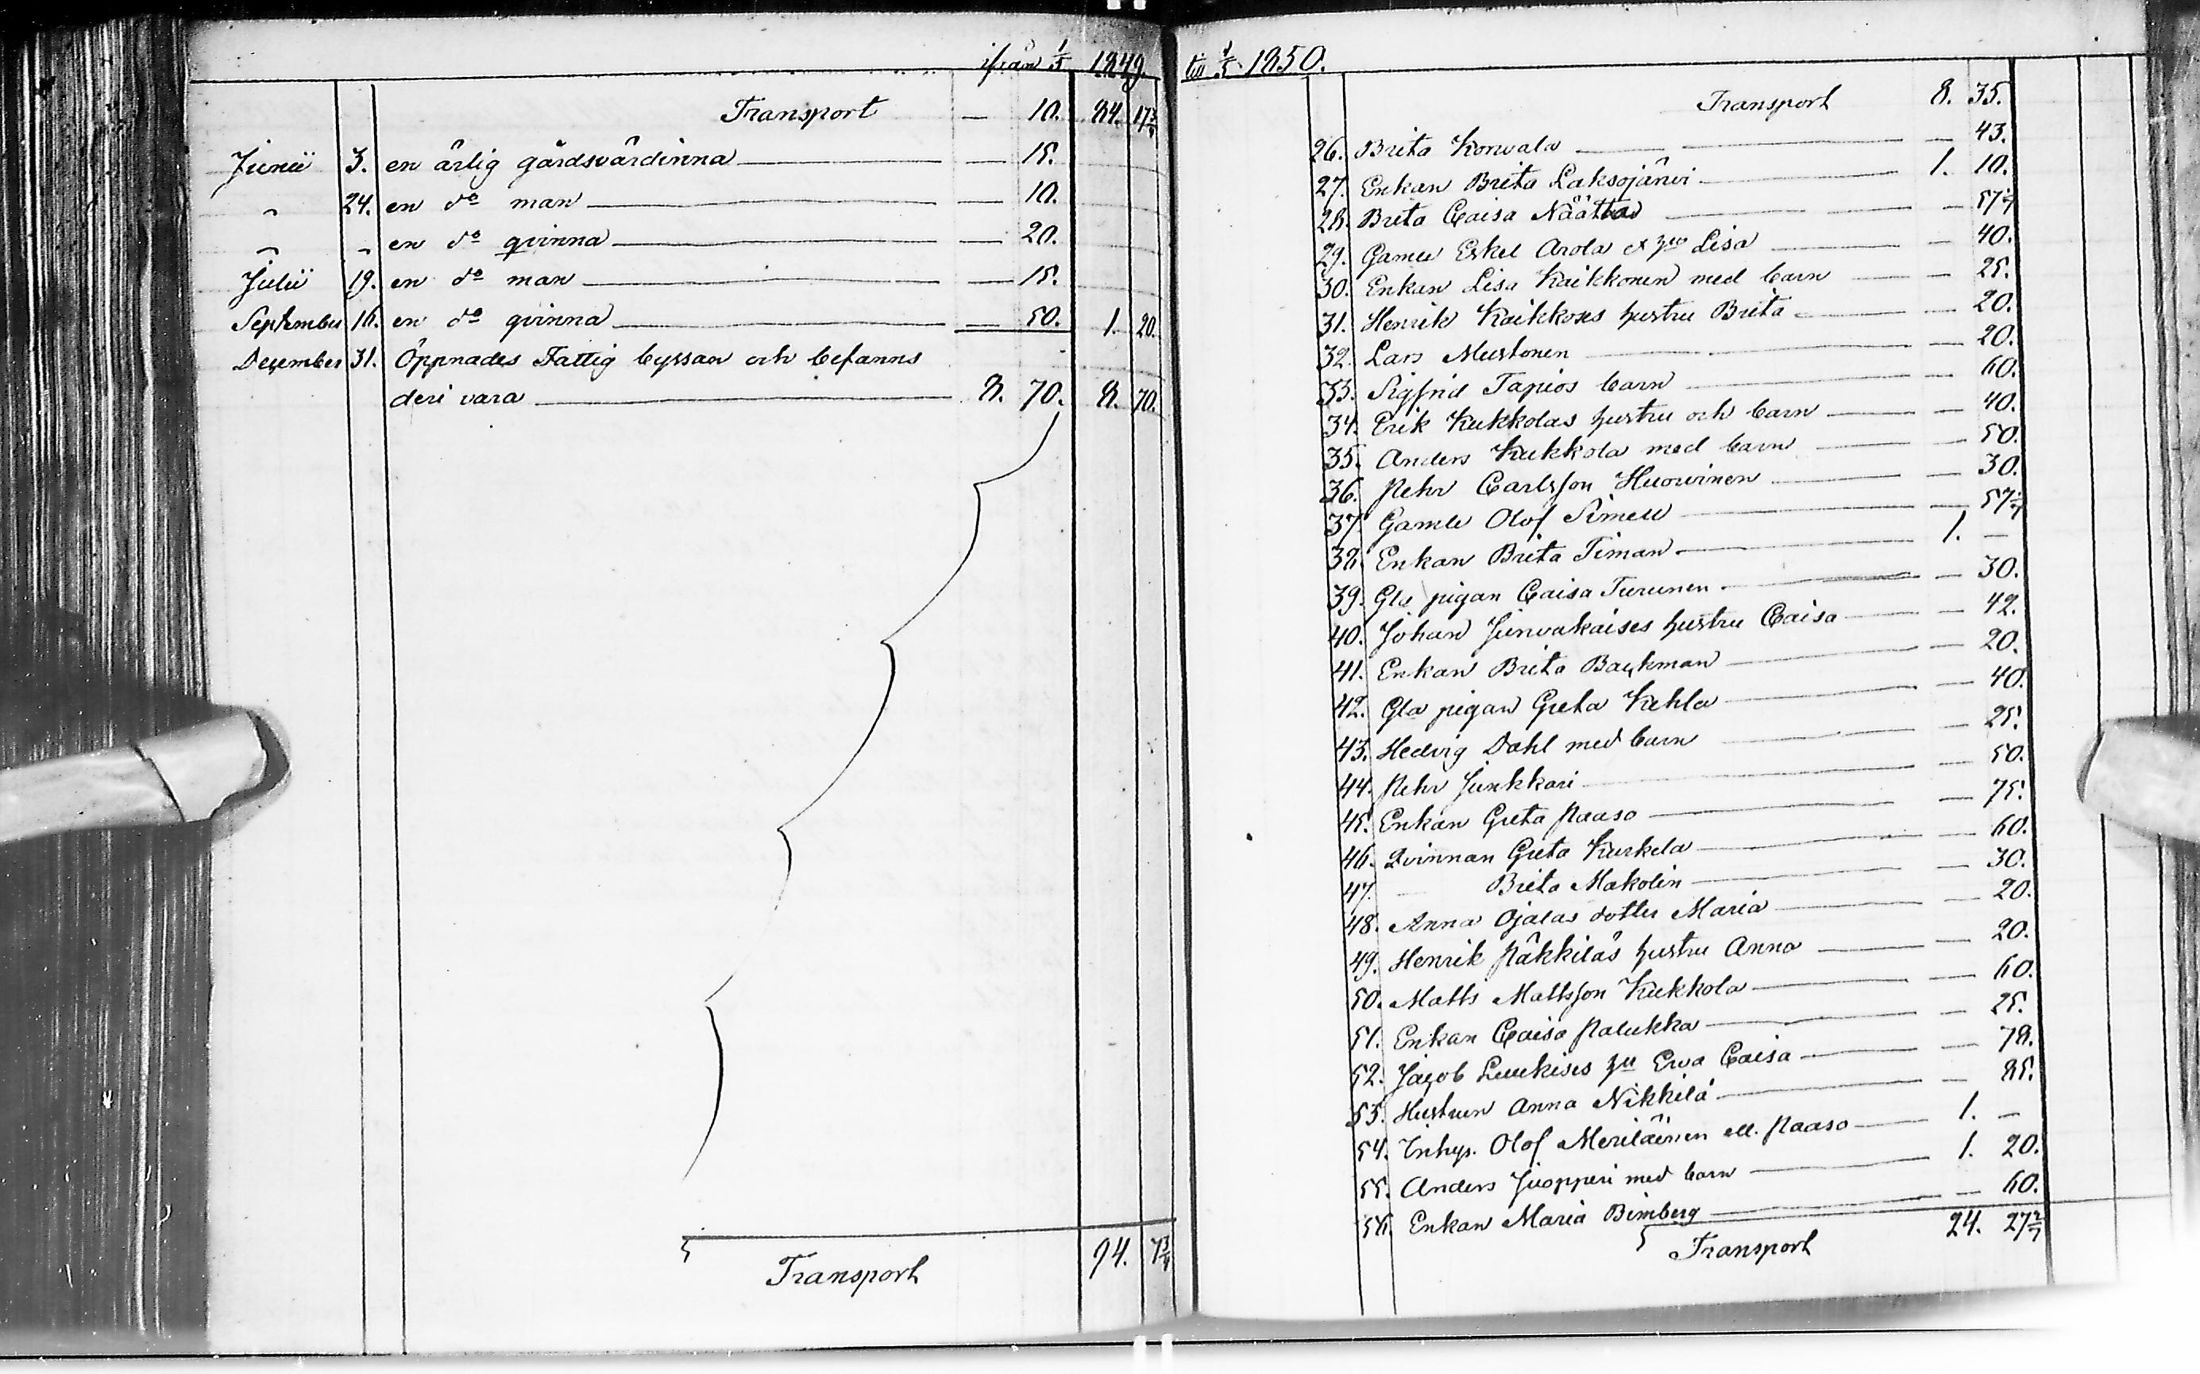 ifrån 1/5 1849.
Transport — 10. 84. 17 3/7
Junii 3. en ärlig gårdsvärdinna — 15.
" 24. en do man — 10.
" " en do qvinna — 20.
Julii 19. en do man — 15.
September 16. en do qvinna — 50. 1. 20.
December 31. Öppnades Fattig byssan och befanns
deri vara 8. 70. 8. 70.
Transport 94. 7 3/7
till 1/5 1850.
Transport 8. 35.
26. Brita Korvala — 43.
27. Enkan Brita Laksojärvi 1. 10.
28. Brita Caisa Näätta — 57 1/7
29. Gamle Eskel Arola & Lisa — 40.
30. Enkan Lisa Kaikkonen med barn — 25.
31. Henrik Kaikkoses hustru Brita — 20.
32. Lars Mustonen — 20.
33. Sigfrid Tapios barn — 60.
34. Erik Kukkolas hustru och barn — 40.
35. Anders Kukkola med barn — 50.
36. Pehr Carlsson Huovinen — 30.
37. Gamle Olof Simell — 57 1/7
38. Enkan Brita Timan 1. —
39. Gla pigan Caisa Turunen — 30.
40. Johan Junvakaises hustru Caisa — 42.
41. Enkan Brita Backman — 20.
42. Gla pigan Greta Kehla — 40.
43. Hedvig Dahl med barn — 25.
44. Pehr Junkkari — 50.
45. Enkan Greta Paaso — 75.
46. Qvinnan Greta Kurkela — 60.
47. — Brita Makolin — 30.
48. Anna Ojalas dotter Maria — 20.
49. Henrik Päkkiläs hustru Anna — 20.
50. Matts Mattsson Kukkola — 60.
51. Enkan Caisa Palukka — 25.
52. Jacob Luukises hu Ewa Caisa — 78.
53. Hustrun Anna Nikkilä — 85.
54. Inhys. Olof Meriläinen ell. Paaso 1. —
55. Anders Juopperi med barn 1. 20.
56. Enkan Maria Bimberg — 60.
Transport 24. 27 2/7